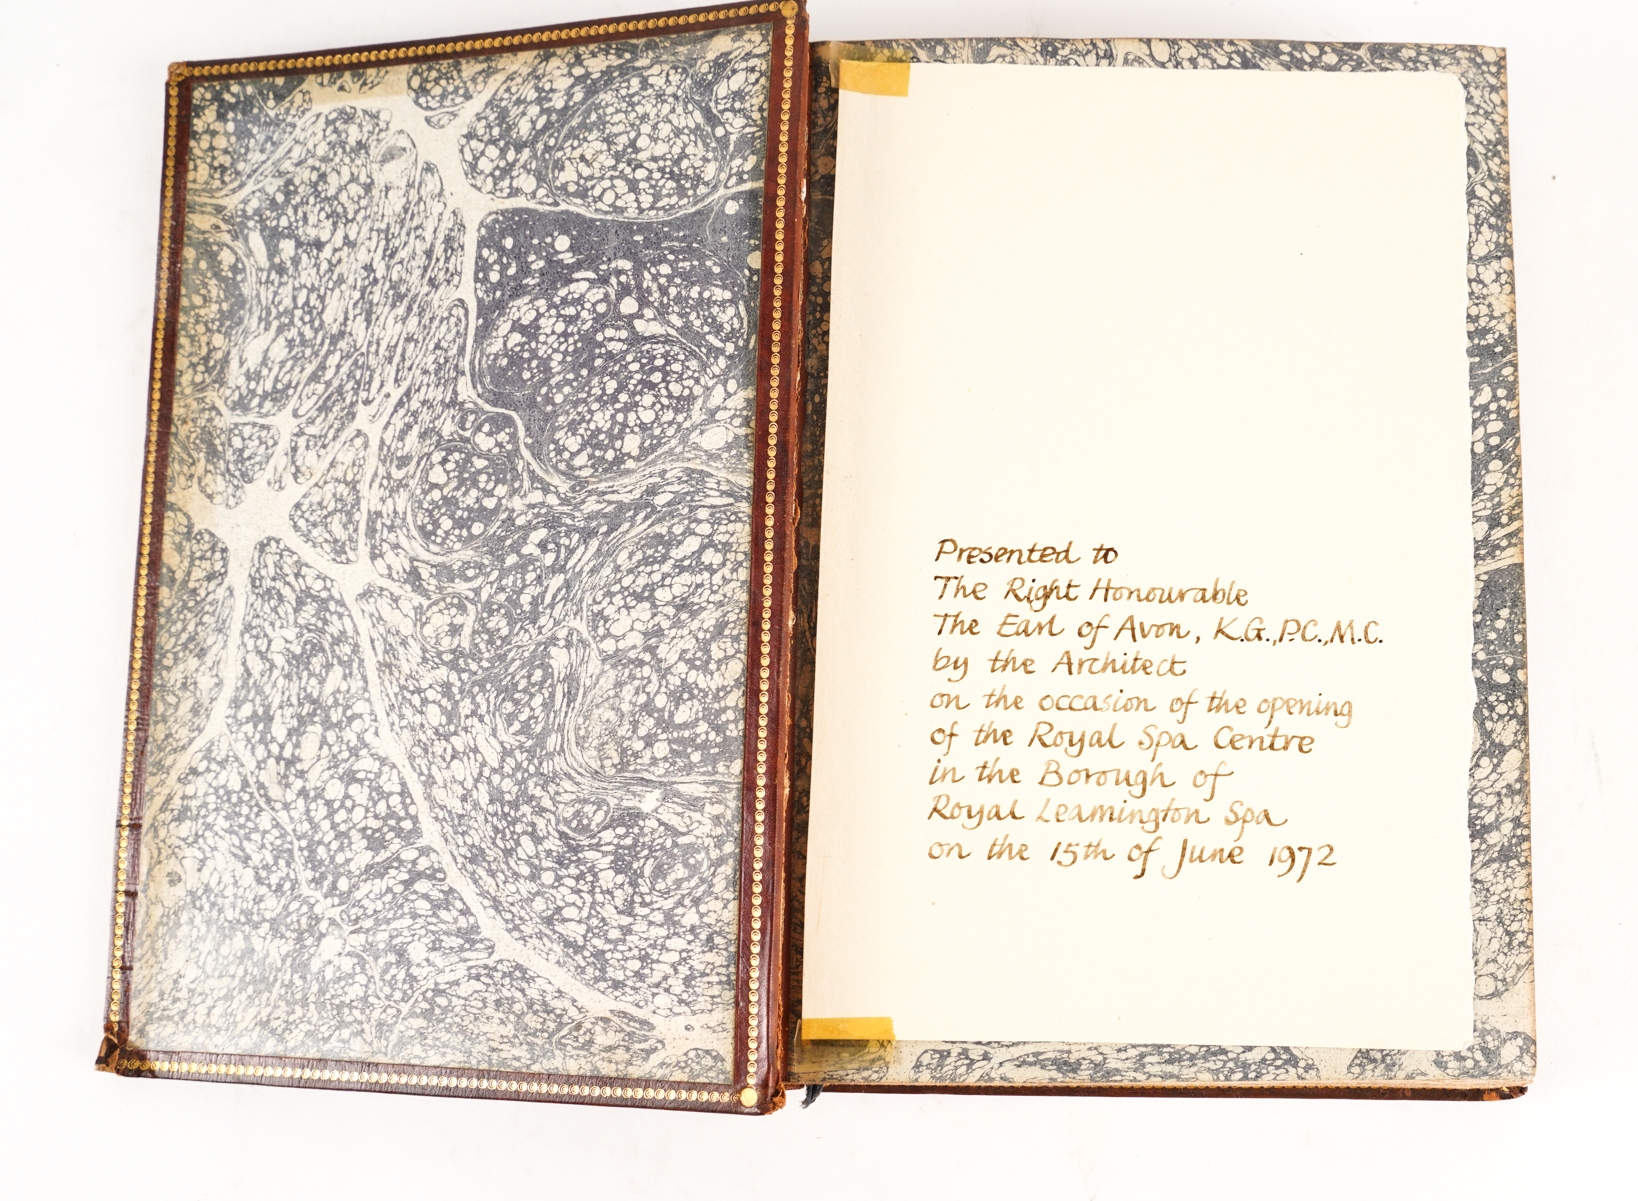 Presented to
The Right Honourable
The Earl of Avon, K.G.,P.C.,M.C.
by the Architect
on the occasion of the opening
of the Royal Spa Centre
in the Borough of
Royal Leamington Spa
on the 15th of June 1972